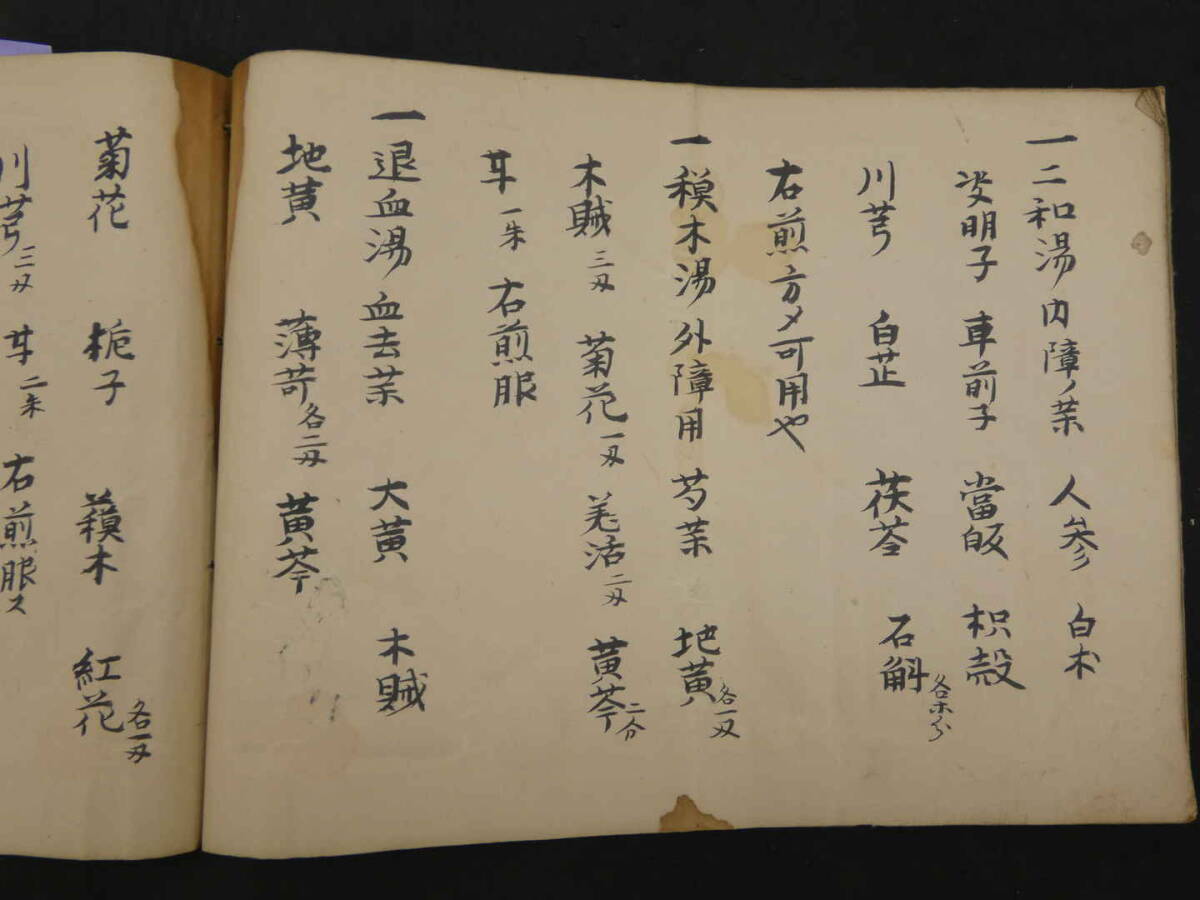 一二和湯 内障ノ薬 人参 白朮
决明子 車前子 當皈 枳殻
川芎 白芷 茯苓 石斛 各等分
右煎方〆可用也
一蘓木湯 外障用 芍薬 地黄 各一匁
木賊 三匁 菊花 一匁 羌活 二匁 黄芩 二分
甘 一朱 右煎服
一退血湯 血去薬 大黄 木賊
地黄 薄苛 各二匁 黄芩
菊花 梔子 蘓木 紅花 各一匁
川芎 三匁 甘 二朱 右煎服ス